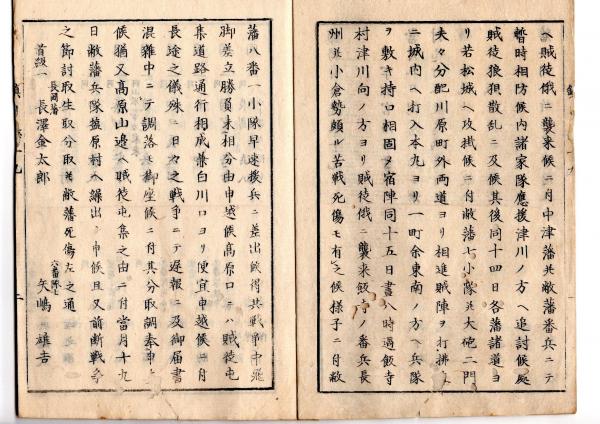 ヘ賊徒俄ニ襲来候ニ月中津藩共敝藩番兵ニテ
暫時相防候内諸家隊應援津川ノ方ヘ追討候処
賊徒狼狽散乱ニ及候其後同十四日各藩諸道ヨ
リ若松城ヘ攻掛候ニ付敝藩七小隊并大砲二門
夫々分配川原町外両道ヨリ相進賊陣ヲ打拂
ニ城内ヘ打入本九ヨリ一町余東南ノ方ヘ兵隊
ヲ敷キ持口相固メ宿陣同十五日書八時過飯寺
村津川向ノ方ヨリ賊徒俄ニ襲来飯寺ノ番兵長
州并小倉勢頗ル苦戦死傷モ有之候様子ニ付敝
藩八番一小隊早速援兵ニ差出候得共戦争中飛
脚差立勝負未相分由申越候高原口ニハ賊徒屯
集道路通行相成兼白川口ヨリ便宜申越候ニ付
長途之儀殊ニ日々之戦争ニテ遅報ニ及御届書
混雑中ニテ調落モ御座候ニ付其分取調奉申上
候猶又高原山辺ヘ賊徒屯集之由ニ付當月十九
日敝藩兵隊藤原村ヘ繰出シ申候且又前断戦争
之節討取生取分取并敝藩死傷左之通
首級一 長岡藩 長澤金太郎 六番隊士 矢嶋 雄吉